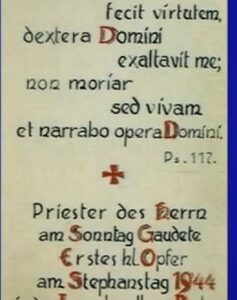 fecit virtutem,
dextera Domini
exaltavit me;
non moriar
sed vivam
et narrabo opera Domini.
Ps. 117.
Priester des Herrn
am Sonntag Gaudete
Erstes hl. Opfer
am Stephanstag 1944